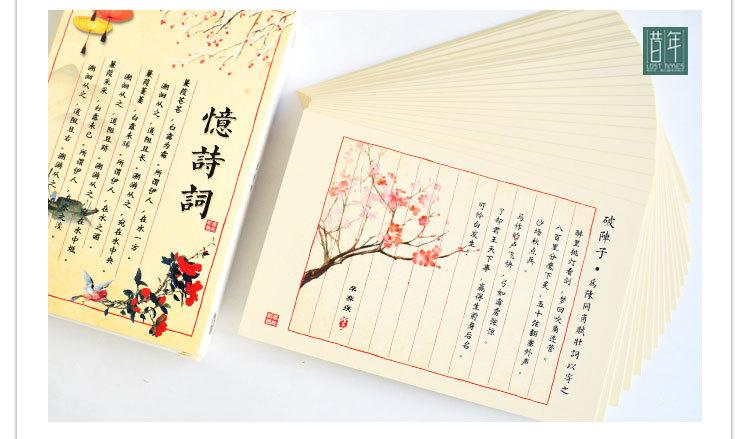 憶詩詞
蒹葭苍苍，白露为霜。所谓伊人，在水一方
溯洄从之，道阻且长。溯游从之，宛在水中央
蒹葭萋萋，白露未晞。所谓伊人，在水之湄
溯洄从之，道阻且跻。溯游从之，宛在水中坻
蒹葭采采，白露未已。所谓伊人，在水之涘
溯洄从之，道阻且右。溯游从之，
昔年
LOST TIMES
破陣子·為陳同甫賦壯詞以寄之
醉里挑灯看剑，梦回吹角连营
八百里分麾下炙，五十弦翻塞外声
沙场秋点兵。
马作的卢飞快，弓如霹雳弦惊
了却君王天下事，赢得生前身后名。
可怜白发生！
辛弃疾